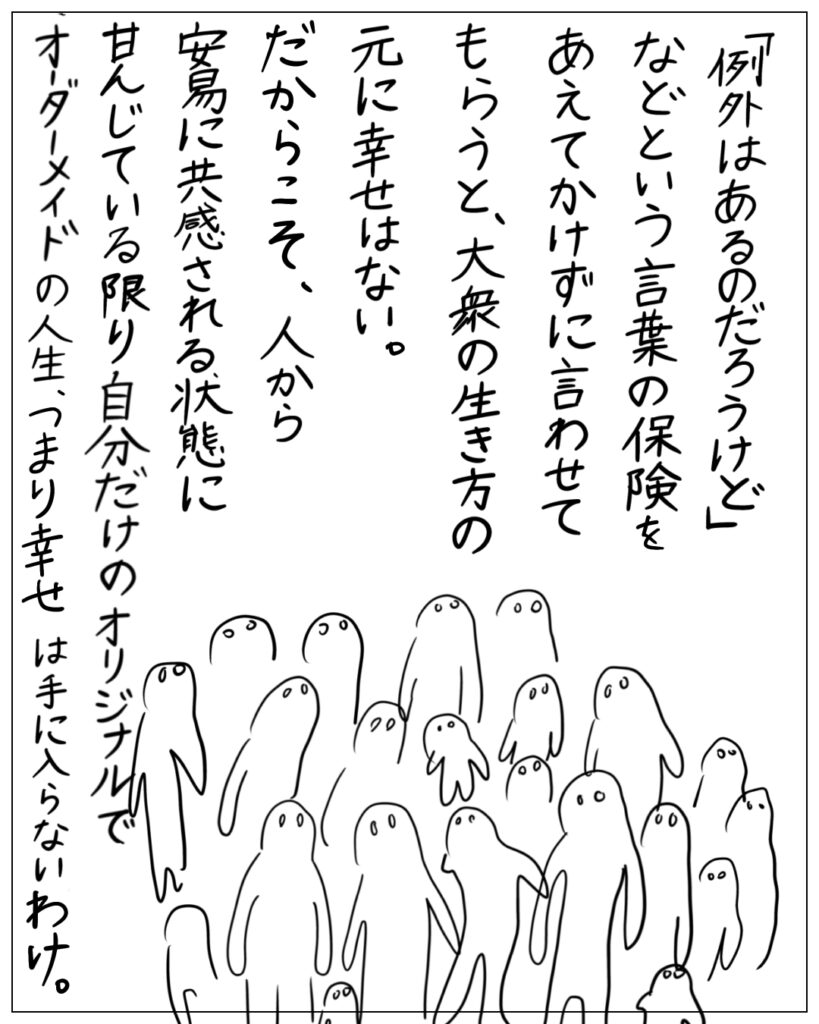 「例外はあるのだろうけど」
などという言葉の保険を
あえてかけずに言わせて
もらうと、大衆の生き方の
元に幸せはない。
だからこそ、人から
安易に共感される状態に
甘んじている限り自分だけのオリジナルで
オーダーメイドの人生、つまり幸せは手に入らないわけ。